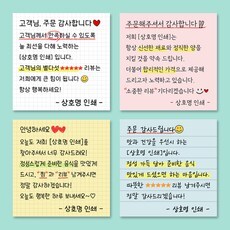 고객님, 주문 감사합니다
고객님께서 만족하실 수 있도록
늘 최선을 다해 노력하는
[상호명 인쇄] 입니다.
고객님의 별다섯 ★★★★★ 리뷰는
저희에게 큰 힘이 됩니다
항상 행복하세요!
- 상호명 인쇄 -
주문해주셔서 감사합니다
저희 [상호명 인쇄]는
항상 신선한 재료와 정직한 맛을
지킬 것을 약속 드립니다.
더불어 합리적인 가격으로 제공해
드리고자 노력하고 있습니다.
"소중한 리뷰" 기다리겠습니다
- 상호명 인쇄 -
안녕하세요
오늘도 저희 [상호명 인쇄]을
찾아주셔서 너무 감사드려요!
정성스럽게 준비한 음식을 맛있게
드시고, "찜"과 "리뷰" 남겨주시면
정말 감사하겠습니다!
오늘도 행복한 하루 보내세요~
- 상호명 인쇄 -
주문 감사드립니다
맛과 건강을 우선시 하는
[상호명 인쇄] 입니다.
정성 가득 담아 준비한 음식
맛있게 드셨으면 하는 마음입니다.
따뜻한 ★★★★★ 리뷰 남겨주시면
정말! 감사드리겠습니다!
- 상호명 인쇄 -